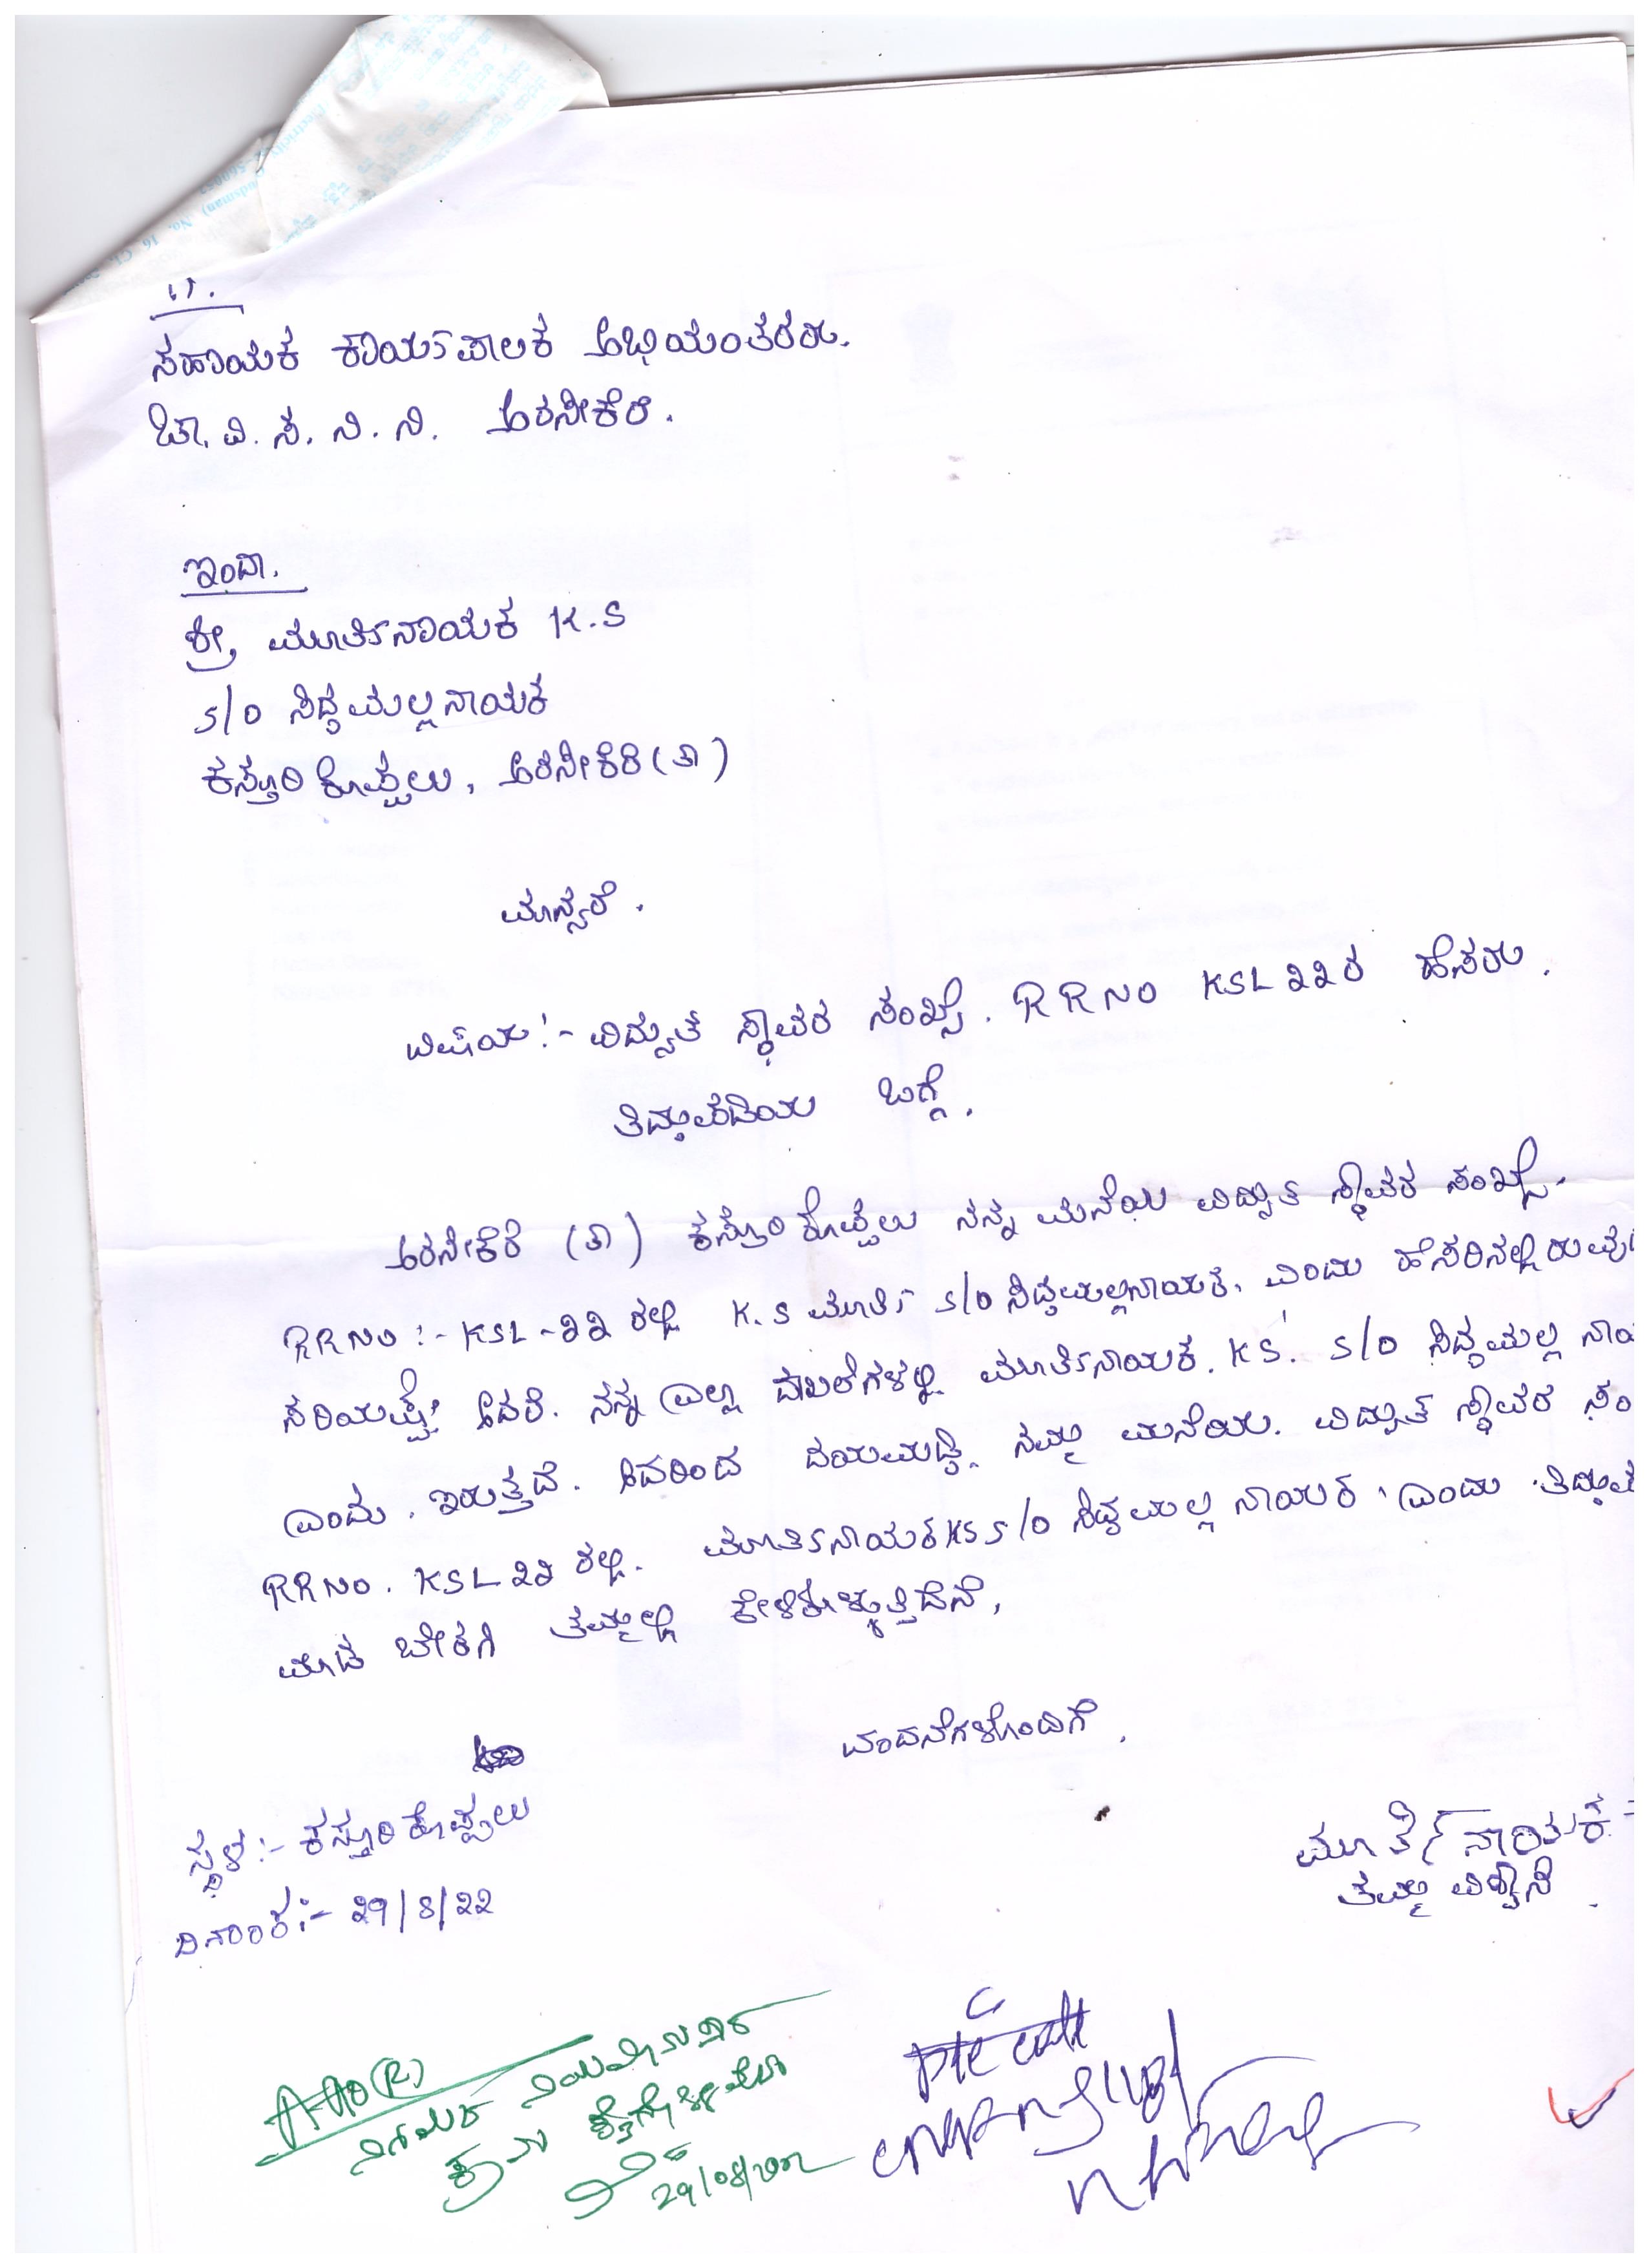 ಸಹಾಯಕ ಕಾರ್ಯಪಾಲಕ ಅಭಿಯಂತರರು.
ಚಾ. ವಿ. ಸ. ನಿ. ನಿ. ಅರಸೀಕೆರೆ.
ಇಂದಾ.
ಶ್ರೀ, ಮೂರ್ತಿನಾಯಕ K.S
S/O ಸಿದ್ದಮಲ್ಲನಾಯಕ
ಕಸ್ತೂರಿಕೊಪ್ಪಲು, ಅರಸೀಕೆರೆ (ತಾ)
ಮಾನ್ಯರೆ.
ವಿಷಯ:- ವಿದ್ಯುತ ಸ್ಥಾವರ ಸಂಖ್ಯೆ. RR NO KSL 22ರ ಹೆಸರು.
ತಿದ್ದುಪಡಿಯ ಬಗ್ಗೆ.
ಅರಸೀಕೆರೆ (ತಾ) ಕಸ್ತೂರಿಕೊಪ್ಪಲು ನನ್ನ ಮನೆಯ ವಿದ್ಯುತ ಸ್ಥಾವರ ಸಂಖ್ಯೆ-
RR NO :- KSL-22 ರಲ್ಲಿ K.S ಮೂರ್ತಿ S/O ಸಿದ್ದಮಲ್ಲನಾಯಕ, ಎಂದು ಹೆಸರಿನಲ್ಲಿರುವು
ಸರಿಯಷ್ಟೆ, ಆದರೆ. ನನ್ನ ಎಲ್ಲಾ ದಾಖಲೆಗಳಲ್ಲಿ ಮೂರ್ತಿನಾಯಕ. KS. S/O ಸಿದ್ದಮಲ್ಲ ನಾಯ
ಎಂದು. ಇರುತ್ತದೆ. ಆದರಿಂದ ದಯಮಾಡಿ, ನಮ್ಮ ಮನೆಯ. ವಿದ್ಯುತ್ ಸ್ಥಾವರ ಸಂ
RR NO. KSL 22 ರಲ್ಲಿ. ಮೂರ್ತಿನಾಯಕ KS S/O ಸಿದ್ದಮಲ್ಲ ನಾಯಕ, ಎಂದು ತಿದ್ದುಪ
ಮಾಡ ಬೇಕಗಿ ತಮ್ಮಲ್ಲಿ ಕೇಳಿಕೊಳ್ಳುತ್ತಿದೆನೆ,
ವಂದನೆಗಳೊಂದಿಗೆ,
ಸ್ಥಳ:- ಕಸ್ತೂರಿಕೊಪ್ಪಲು
ದಿನಾಂಕ:- 29/8/22
ಮೂರ್ತಿನಾಯಕ
ತಮ್ಮ ವಿಶ್ವಾಸಿ
AAO(R)
ನಿಯಮಾನುಸಾರ
ಕ್ರಮ ಕೈಗೊಳ್ಳಬೇಕು
29/08/2022